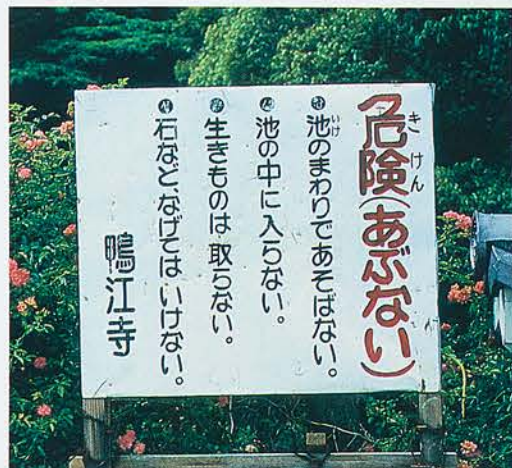 危険(あぶない)
池のまわりであそばない。
池の中に入らない。
生きものは取らない。
石など、なげてはいけない。
鴨江寺